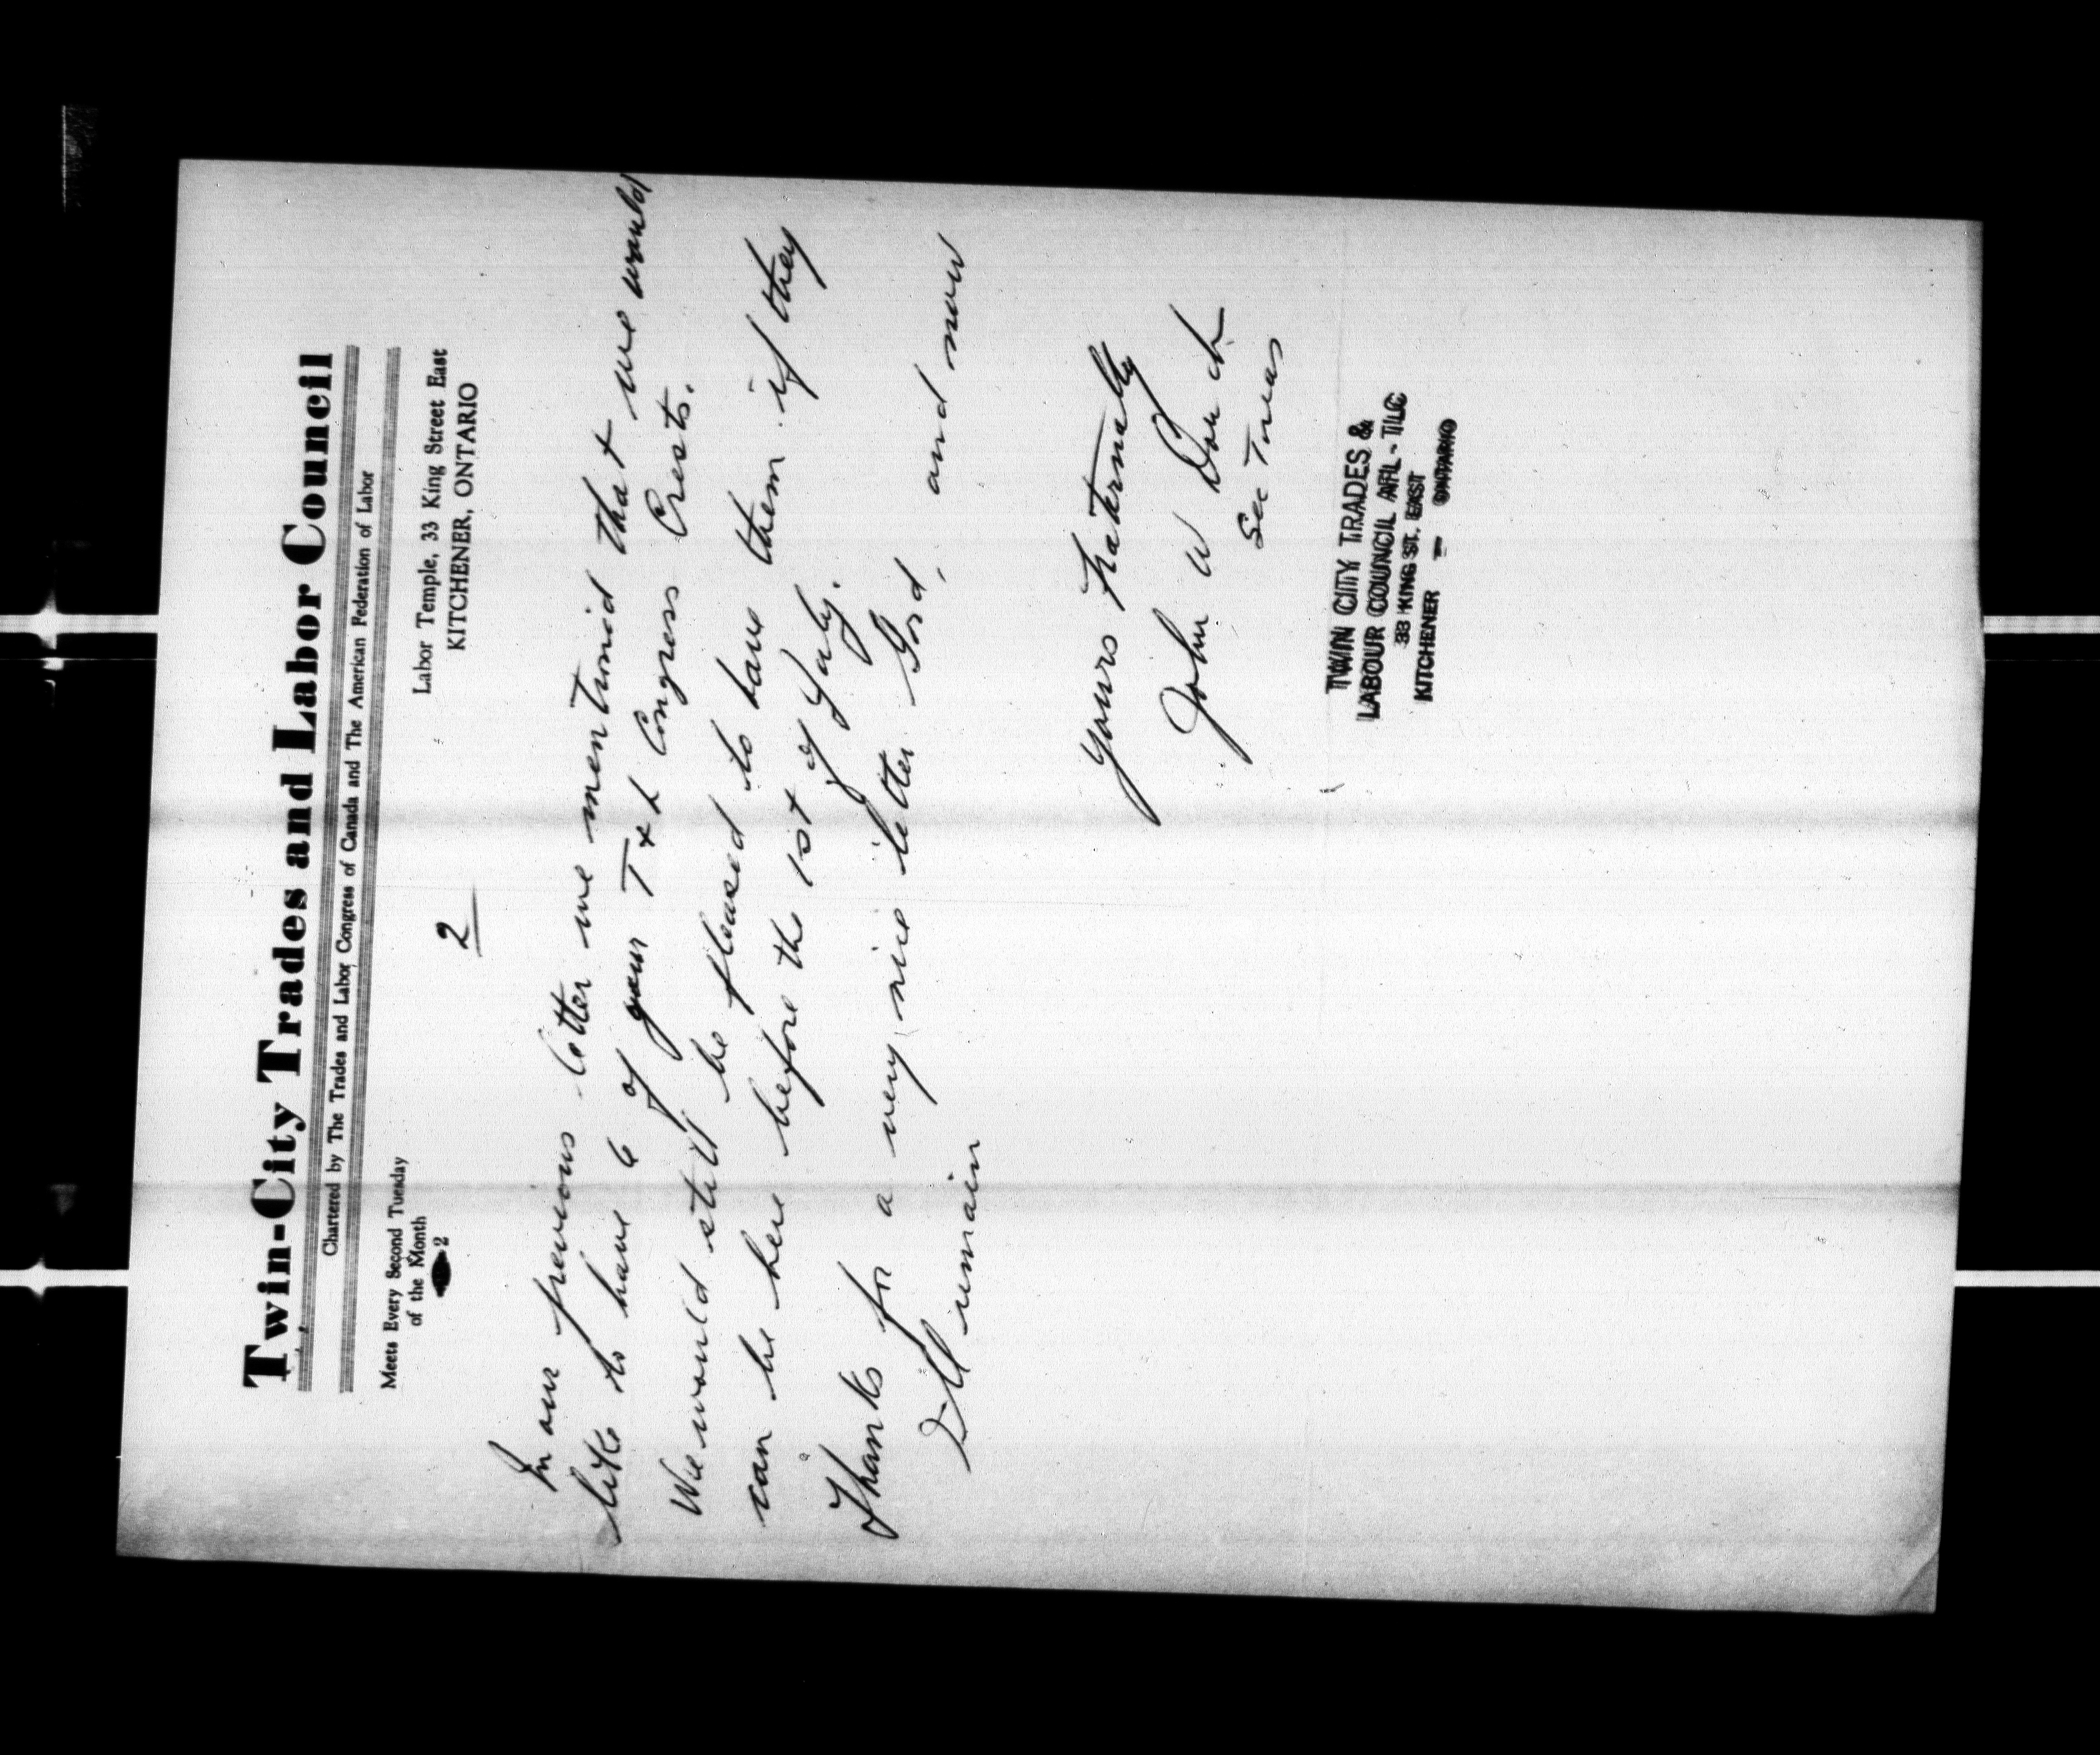 Twin-City Trades and Labor Council
Chartered by The Trades and Labor Congress of Canada and The American Federation of Labor
Meets Every Second Tuesday
of the Month
2
Labor Temple, 33 King Street East
KITCHENER, ONTARIO
2
In our previous letter we mentioned that we would
like to have 6 of your T & L Congress Crests.
We would still be pleased to have them if they
can be here before the 1st of July.
Thanks for a very nice letter Gord, and now
I'll remain
Yours Fraternally
John W
Sec Treas
TWIN CITY TRADES &
LABOUR COUNCIL AFL - TLC
33 KING ST. EAST
KITCHENER - ONTARIO